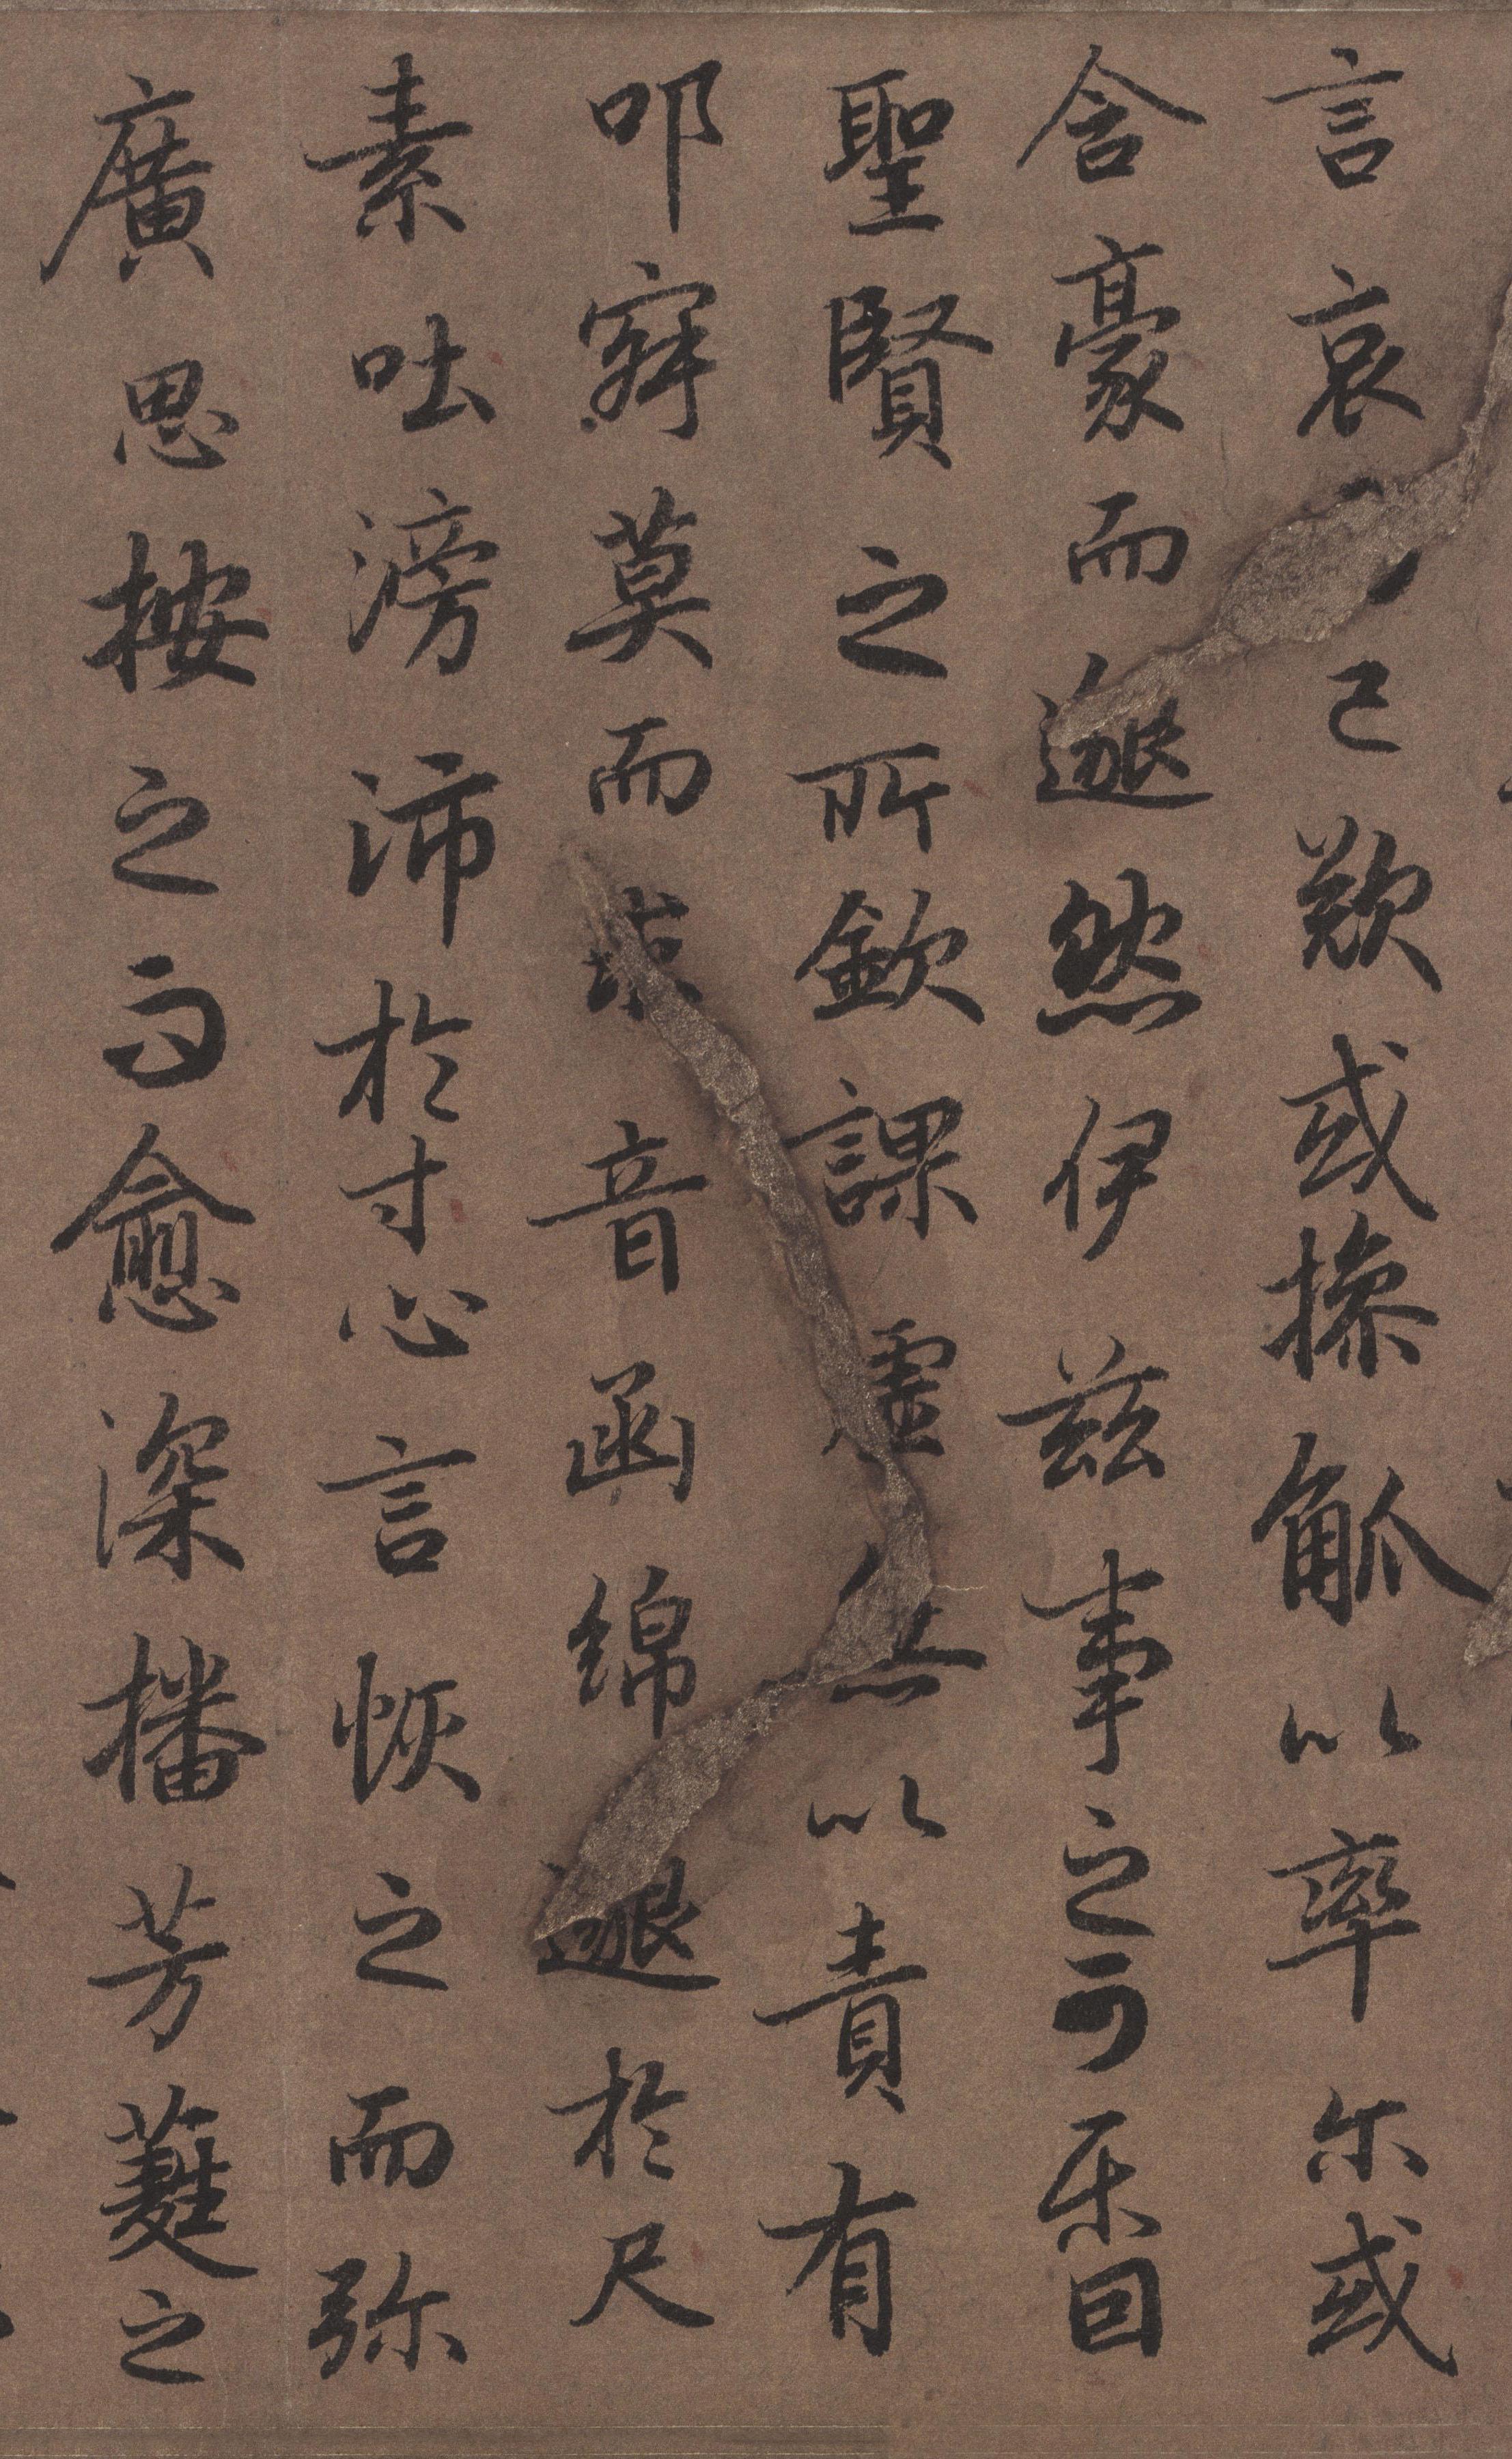 言哀已歎或操觚以率尔或
含豪而邈然伊兹事之可乐固
聖賢之所欽課虛無以責有
叩寂莫而求音函綿邈於尺
素吐滂沛於寸心言恢之而弥
廣思按之而愈深播芳蕤之